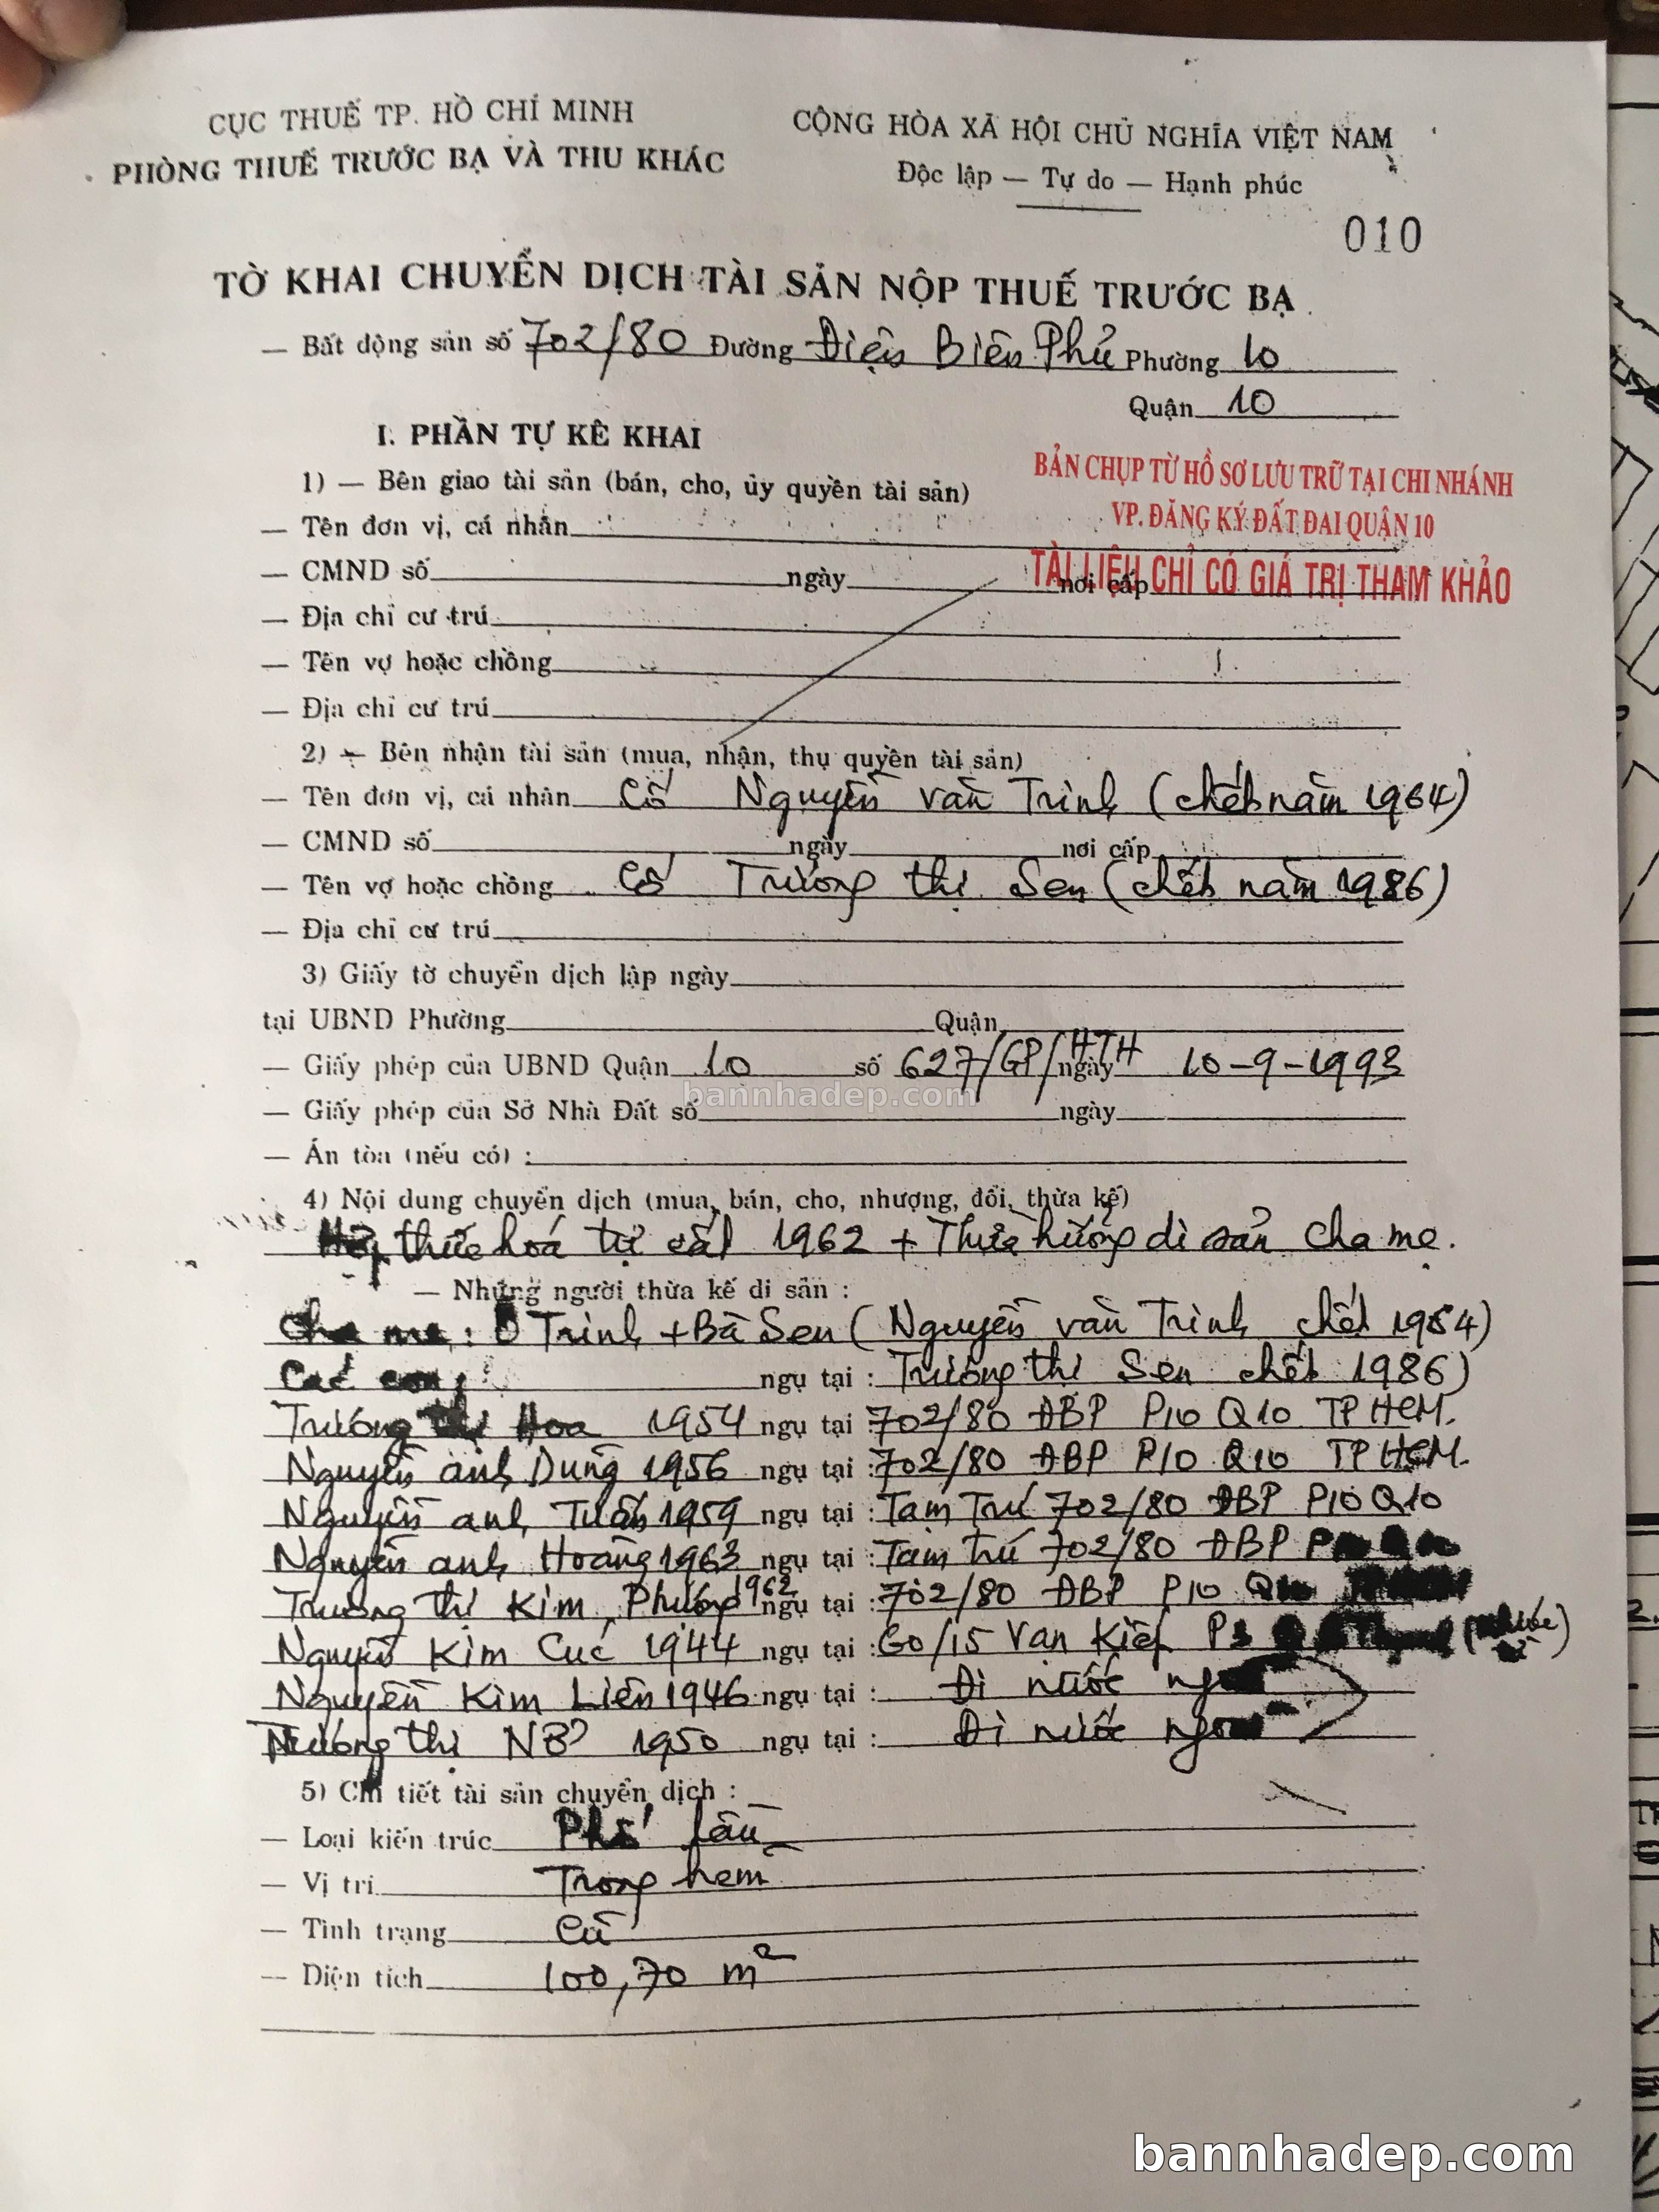 CỤC THUẾ TP. HỒ CHÍ MINH
PHÒNG THUẾ TRƯỚC BẠ VÀ THU KHÁC
CỘNG HÒA XÃ HỘI CHỦ NGHĨA VIỆT NAM
Độc lập — Tự do — Hạnh phúc
010
TỜ KHAI CHUYỂN DỊCH TÀI SẢN NỘP THUẾ TRƯỚC BẠ
— Bất động sản số 702/80 Đường Điện Biên Phủ Phường 10
Quận 10
I. PHẦN TỰ KÊ KHAI
BẢN CHỤP TỪ HỒ SƠ LƯU TRỮ TẠI CHI NHÁNH
VP. ĐĂNG KÝ ĐẤT ĐAI QUẬN 10
TÀI LIỆU CHỈ CÓ GIÁ TRỊ THAM KHẢO
1) — Bên giao tài sản (bán, cho, ủy quyền tài sản)
— Tên đơn vị, cá nhân
— CMND số ngày nơi cấp
— Địa chỉ cư trú
— Tên vợ hoặc chồng
— Địa chỉ cư trú
2) — Bên nhận tài sản (mua, nhận, thụ quyền tài sản)
— Tên đơn vị, cá nhân Cố Nguyễn văn Trinh (chết năm 1964)
— CMND số ngày nơi cấp
— Tên vợ hoặc chồng Cố Trương thị Sen (chết năm 1986)
— Địa chỉ cư trú
3) Giấy tờ chuyển dịch lập ngày
tại UBND Phường Quận
— Giấy phép của UBND Quận 10 số 627/GP/HTH ngày 10-9-1993
bannhadep.com
— Giấy phép của Sở Nhà Đất số ngày
— Án tòa (nếu có) :
4) Nội dung chuyển dịch (mua, bán, cho, nhượng, đổi, thừa kế)
Hợp thức hoá tự cất 1962 + Thừa hưởng di sản cha mẹ.
— Những người thừa kế di sản :
Cha mẹ : Ô Trinh + Bà Sen (Nguyễn văn Trinh chết 1964)
Các con ngụ tại : Trương thị Sen chết 1986)
Trương thị Hoa 1954 ngụ tại : 702/80 ĐBP P10 Q10 TP HCM.
Nguyễn anh Dũng 1956 ngụ tại : 702/80 ĐBP P10 Q10 TP HCM.
Nguyễn anh Tuấn 1959 ngụ tại : Tạm Trú 702/80 ĐBP P10 Q10
Nguyễn anh Hoàng 1963 ngụ tại : Tạm trú 702/80 ĐBP
Trương thị Kim Phượng 1962 ngụ tại : 702/80 ĐBP P10 Q10
Nguyễn Kim Cúc 1944 ngụ tại : 60/15 Vạn Kiếp P3
Nguyễn Kim Liên 1946 ngụ tại : Đi nước ngoài
Trương thị NỞ 1950 ngụ tại : Đi nước ngoài
5) Chi tiết tài sản chuyển dịch :
— Loại kiến trúc Phố lầu
— Vị trí Trong hẻm
— Tình trạng Cũ
— Diện tích 100,70 m²
bannhadep.com